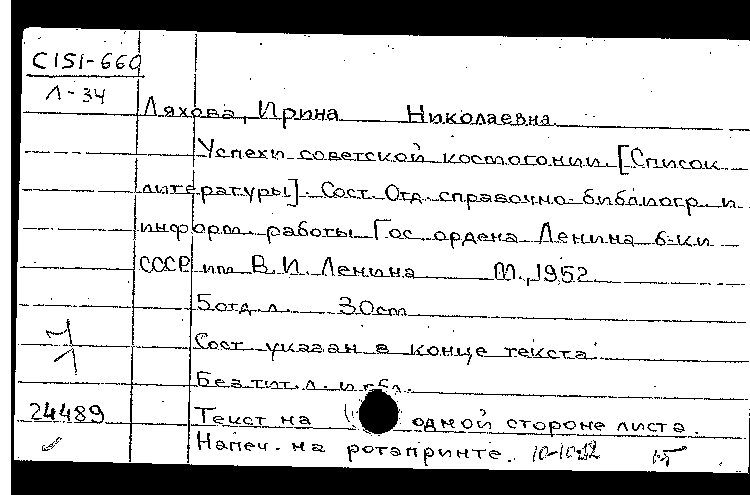 C151-660
Л-34
Ляхова, Ирина Николаевна
Успехи советской космогонии. [Список
литературы]. Сост. Отд. справочно-библиогр. и
информ. работы Гос. ордена Ленина б-ки
СССР им. В.И. Ленина М., 1952
5 отд. л. 30cm
Сост. указан в конце текста.
Без тит. л. и обл.
24489
Текст на одной стороне листа.
Напеч. на ротапринте.